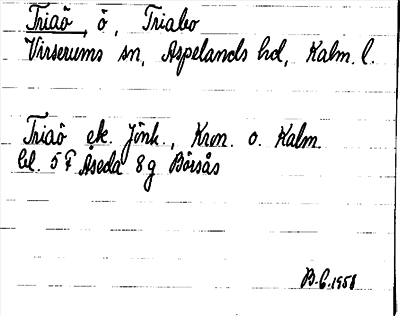 Triaö, ö, Triabo
Virserums sn, Aspelands hd, Kalm. l.
Triaö ek. Jönk., Kron. o. Kalm.
bl. 5 F Åseda 8 g Börsås
B.G. 1958